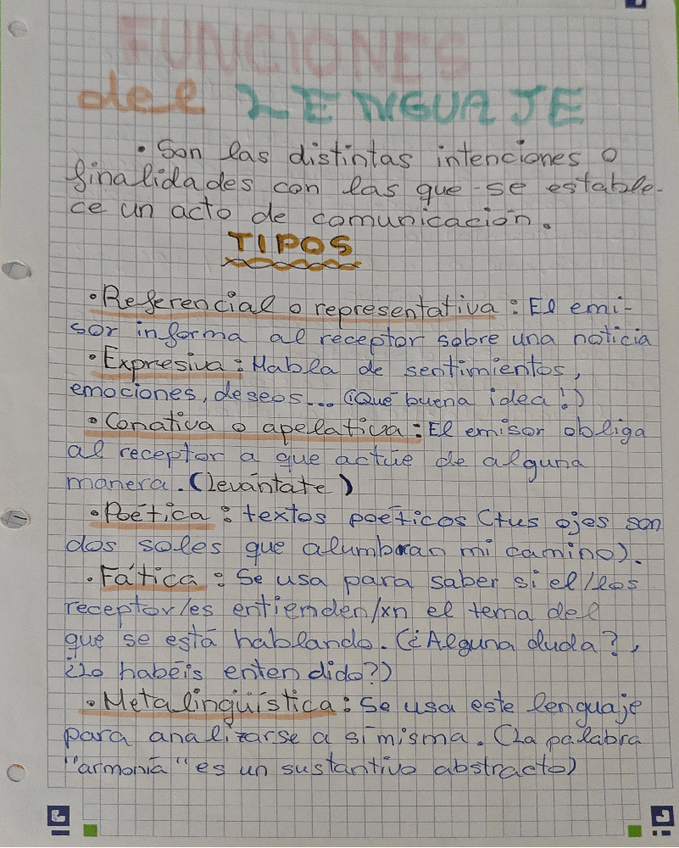 FUNCIONES
del LENGUAJE
• Son las distintas intenciones o
finalidades con las que se estable-
ce un acto de comunicación.
TIPOS
• Referencial o representativa: El emi-
sor informa al receptor sobre una noticia
• Expresiva: Habla de sentimientos,
emociones, deseos... (¡Qué buena idea!)
• Conativa o apelativa: El emisor obliga
al receptor a que actúe de alguna
manera. (levántate)
• Poética: textos poéticos (tus ojos son
dos soles que alumbran mi camino).
• Fática: Se usa para saber si el/los
receptor/es entienden/xn el tema del
que se está hablando. (¿Alguna duda?,
¿lo habéis entendido?)
• Metalingüística: Se usa este lenguaje
para analizarse a sí misma. (La palabra
"armonía" es un sustantivo abstracto)